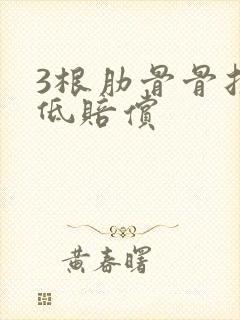 3根肋骨骨折
低赔偿
黄春曙